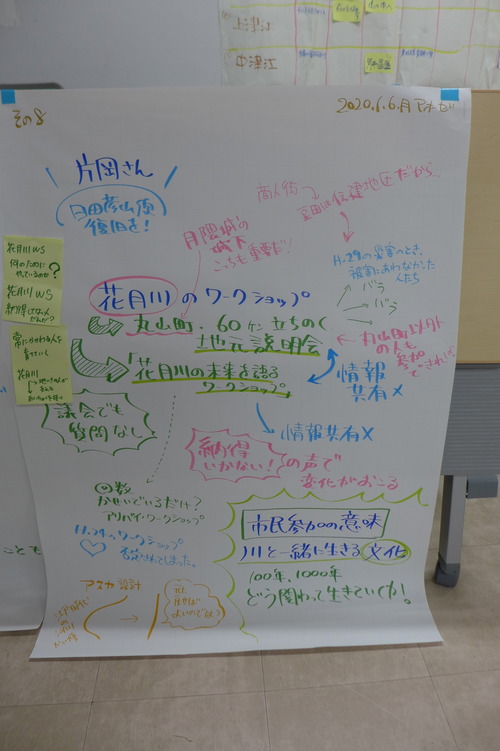 上津江
中津江
その8
2020.6.6.月
片岡さん
日田彦山線
復旧を!
商人街
豆田は伝建地区だから…
月隈城の
城下
こっちも重要だ!
H.29の災害のとき、
被害にあわなかった
人たち
バラ
バラ
バラ
花月川WS
何のために
やっているのか?
花月川WS
花月川
花月川のワークショップ
丸山町・60ケン立ちのく
地元説明会
「花月川の未来を語る
ワークショップ」
丸山町以外
の人も
参加
できれば…
情報
共有×
議会でも
質問なし
情報共有×
納得
いかない!の声で
変化がおこる
回数
かせいでいるだけ?
アリバイ・ワークショップ
H.24のワークショップ
否定されてしまった。
市民参加の意味
川と一緒に生きる文化
100年、1000年
どう関わって生きていくか!
アスカ設計
江戸時代
の
花月川